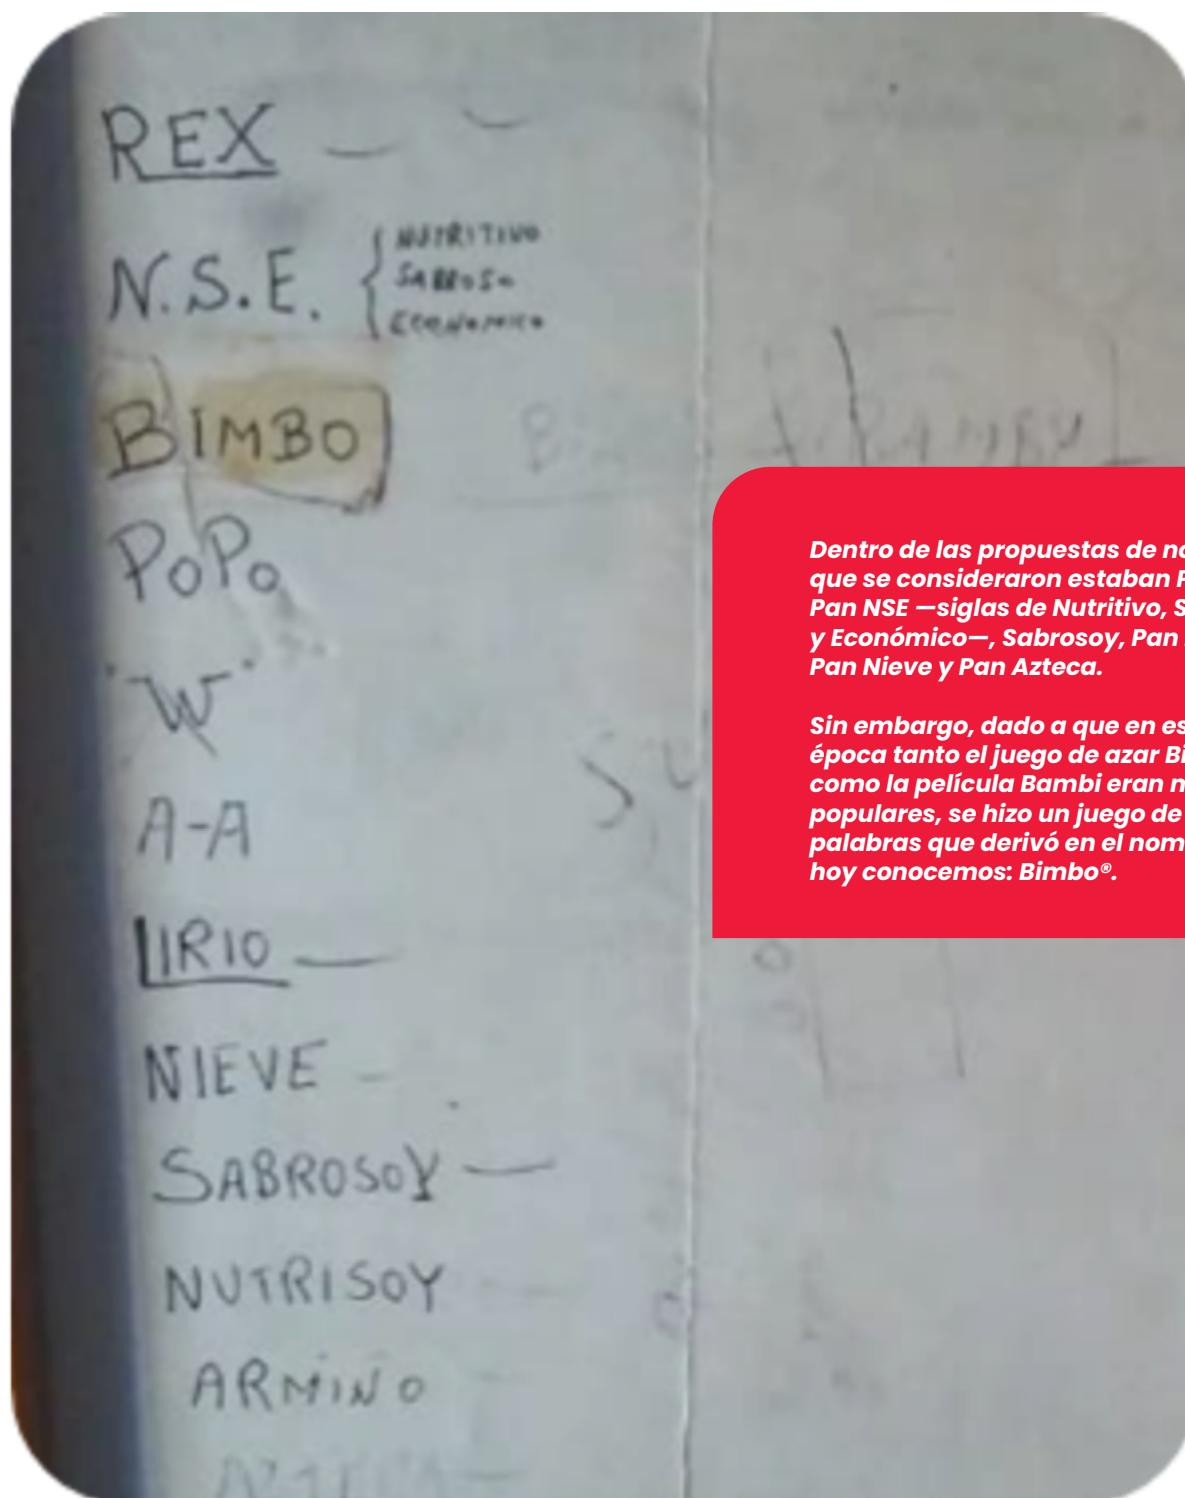 REX
N.S.E. { NUTRITIVO
SABROSO
ECONOMICO
BIMBO
POPO
"W"
A-A
LIRIO
NIEVE
SABROSOY
NUTRISOY
ARMIÑO
AZTECA
Dentro de las propuestas de
que se consideraron estaban
Pan NSE —siglas de Nutritivo,
y Económico—, Sabrosoy, Pan
Pan Nieve y Pan Azteca.
Sin embargo, dado a que en
época tanto el juego de azar
como la película Bambi eran
populares, se hizo un juego de
palabras que derivó en el
hoy conocemos: Bimbo®.